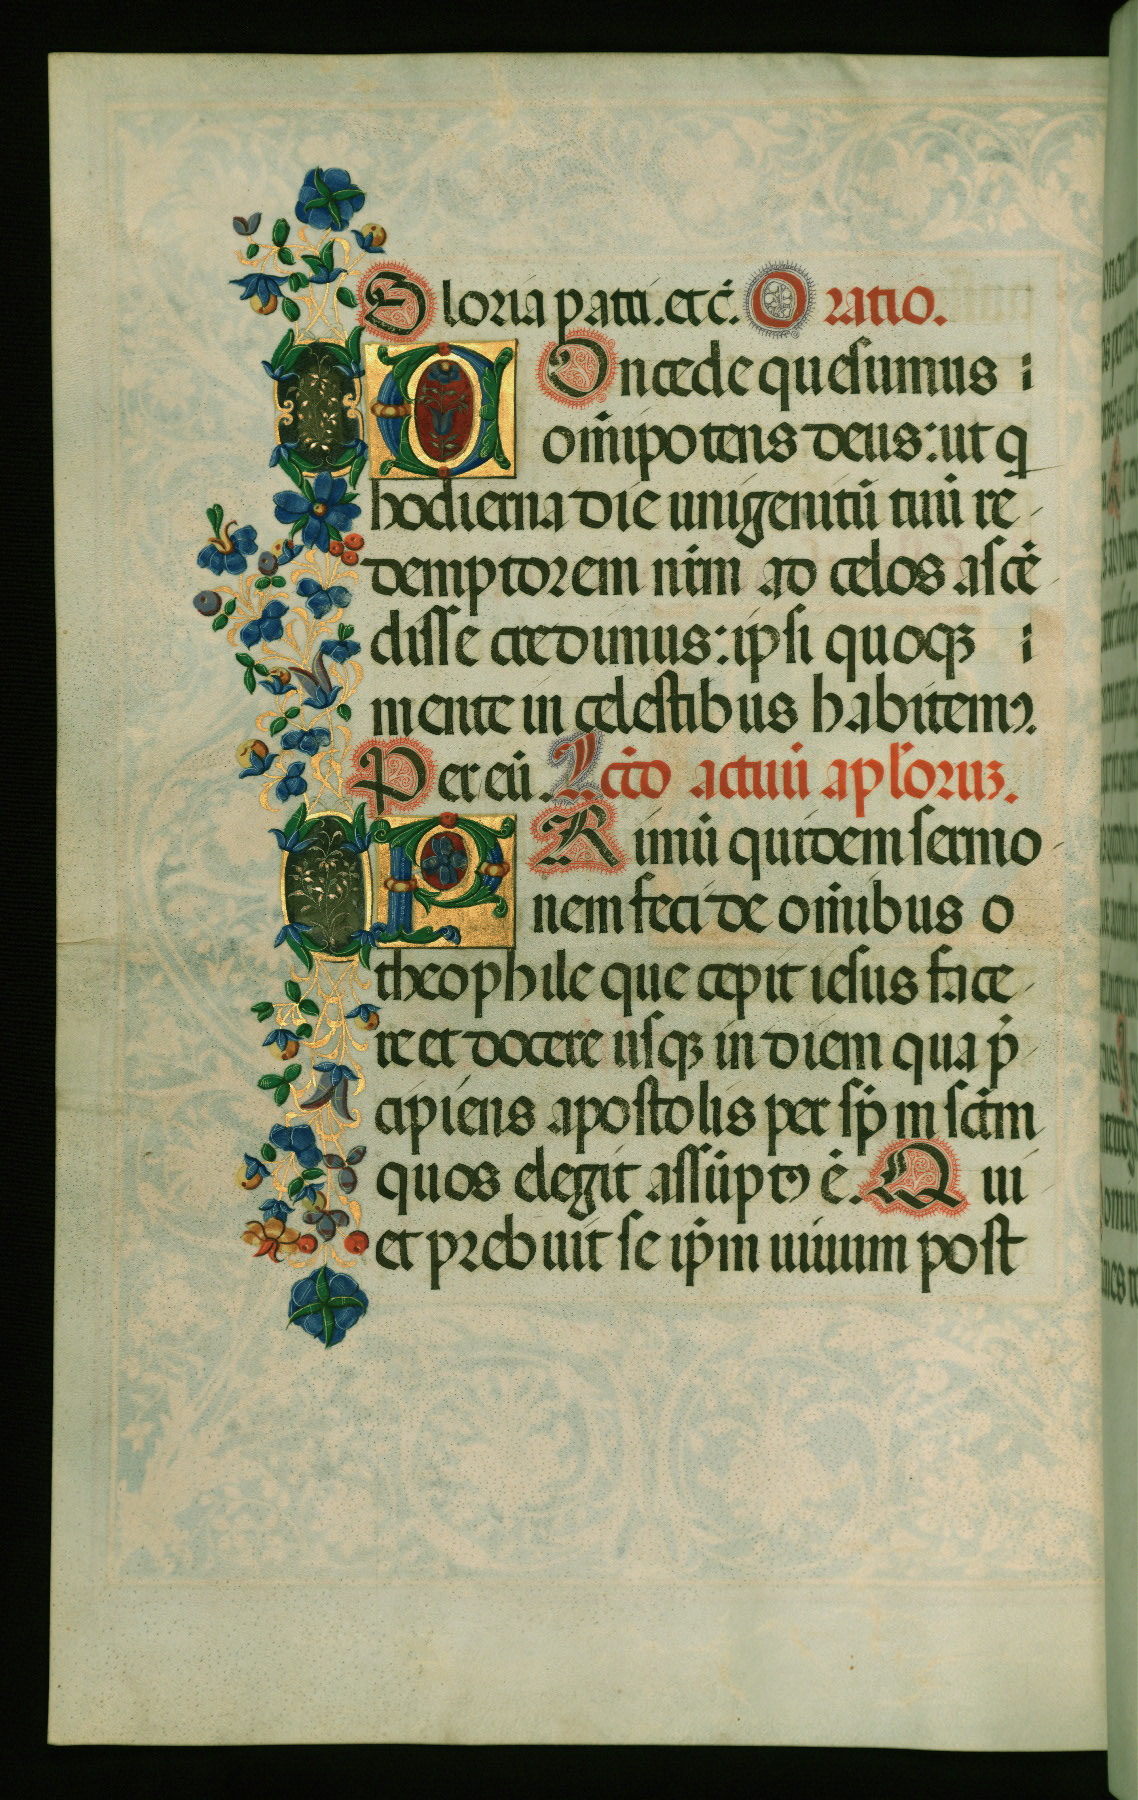 Gloria patri. etc̄. Oratio.
COncede quesumus
om̄ipotens deus: ut q
hodierna die unigenitū tuū re
demptorem nr̄m ad celos ascē
disse credimus: ipsi quoqꝫ
mente in celestibus habitemꝰ.
Per eū. Lc̄to actuū apl̓oruꝫ.
PRimū quidem sermo
nem feci de om̄ibus o
theophile que cepit iesus face
re et docere usqꝫ in diem qua p̄
cipiens apostolis per sp̄m sc̄tm
quos elegit assūptꝰ ē. Qui
et prebuit se ip̄m uiuum post